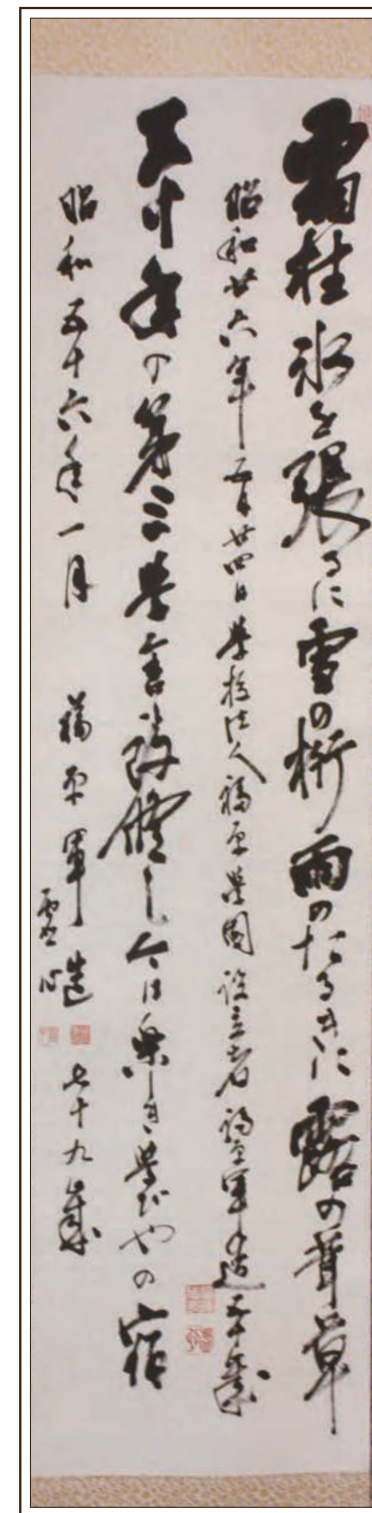 霜柱氷を張るに雪の桁雨のたるきに露の葺草
昭和廿六年五月廿四日学校法人福原学園設立者福原軍造五十歳
三十年の第三学舎改修し今は楽しき学びやの宿
昭和五十六年一月 福原軍造 七十九歳